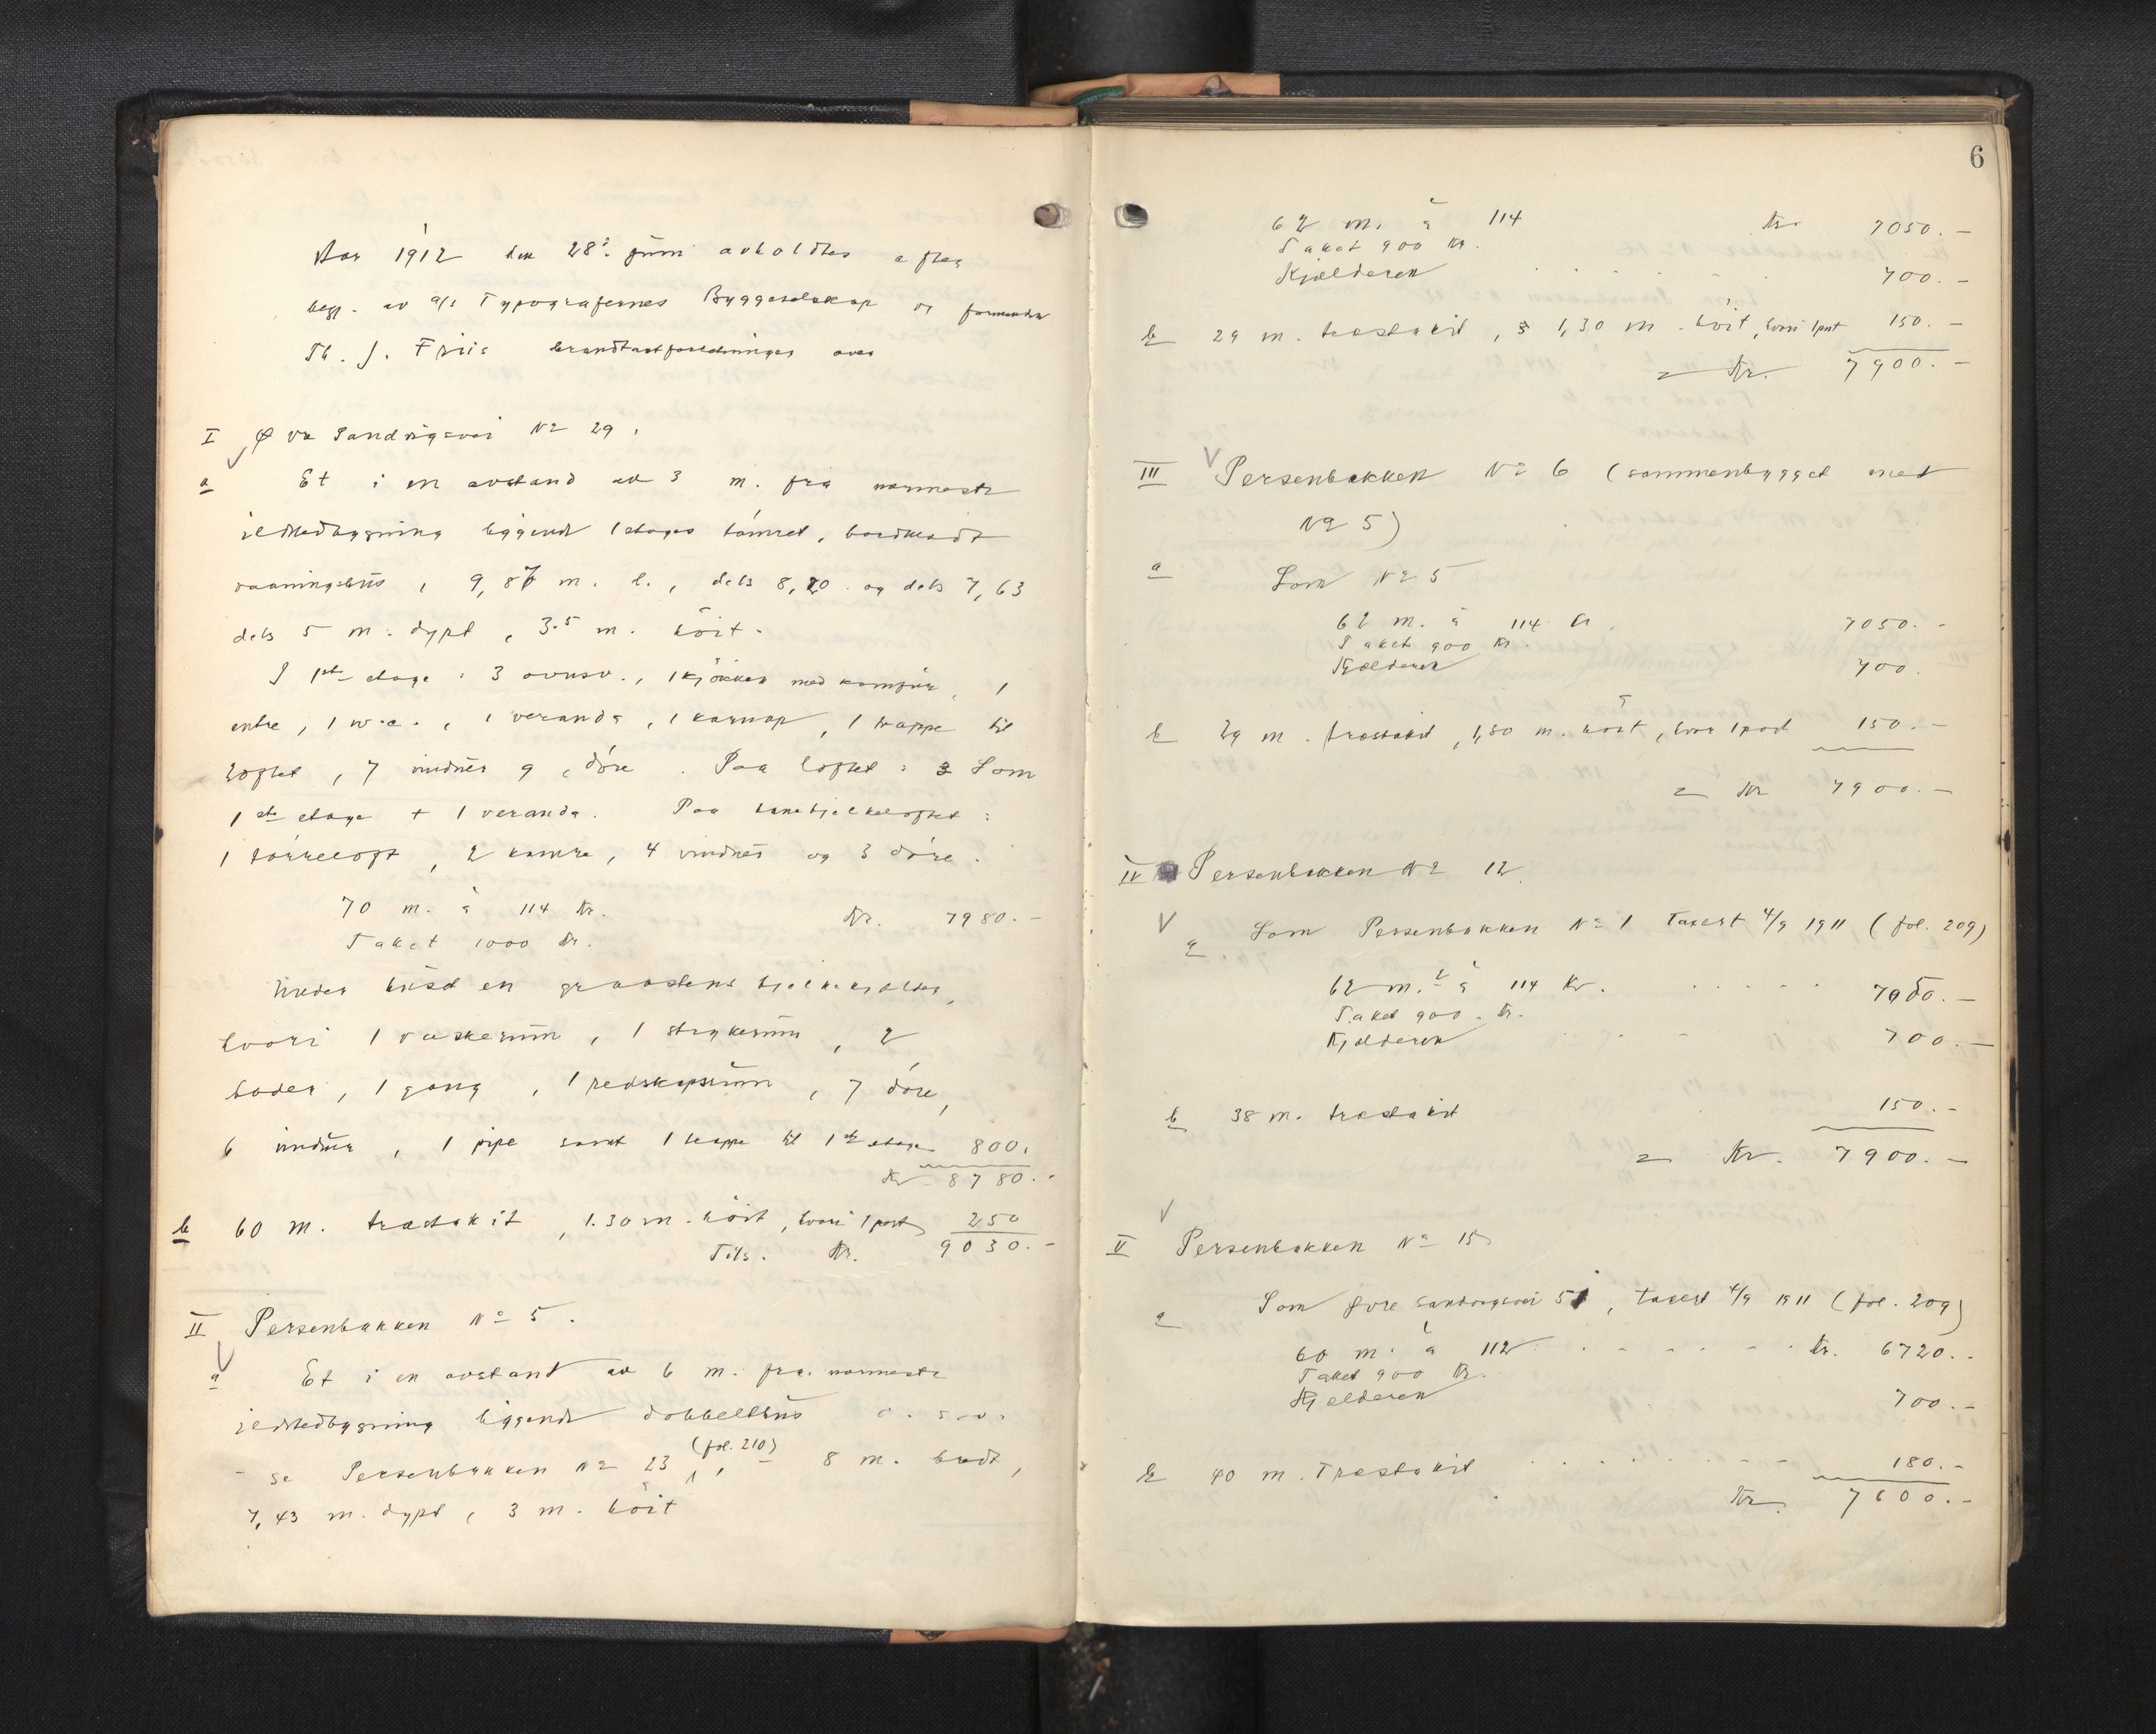 Aar 1912 den 28de juni avholdtes efter
begj. av a/s Typografernes Byggeselskap og formanden
Th. J. Friis brandtaxtforretninger over
I Øvre Sandvigsvei No 29.
a Et i en avstand av 3 m. fra nærmeste
ildstedbygning liggende 1 etages tømret, bordklædt
vaaningshus, 9,87 m. l., dels 8,20 og dels 7,63
dels 5 m. dypt, 3.5 m. høit.
I 1ste etage: 3 ovnsv., 1 kjøkken med komfur, 1
entre, 1 w.c., 1 veranda, 1 karnap, 1 trappe til
loftet, 7 vinduer, 9 døre. Paa loftet: Som
1ste etage + 1 veranda. Paa hanebjelkeloftet:
1 tørreloft, 2 kamre, 4 vinduer og 3 døre.
70 m. à 114 Kr. Kr. 7980.-
Taket 1000 Kr.
Under huset en graastens bjelkekjelder,
hvori 1 vaskerum, 1 strykerum, 2
boder, 1 gang, 1 redskapsrum, 7 døre,
6 vinduer, 1 pipe samt 1 trappe til 1ste etage 800.
Kr 8780.-
b 60 m. træstakit, 1.30 m. høit, hvori 1 port 250
Tils. Kr. 9030.-
II Persenbakken No 5.
a Et i en avstand av 6 m. fra nærmeste
ildstedbygning liggende dobbelthus
se Persenbakken No 23 (fol. 210) 8 m. bredt,
7,43 m. dypt, 3 m. høit
6
62 m. à 114 Kr. 7050.-
Taket 900 Kr.
Kjælderen 700.-
b 29 m. træstakit, 1,30 m. høit, hvori 1 port 150.-
= Kr. 7900.-
III Persenbakken No 6 (sammenbygget med
No 5)
a Som No 5
62 m. à 114 Kr. 7050.-
Taket 900 Kr.
Kjælderen 700.
b 29 m. træstakit, 1,30 m. høit, hvori 1 port 150.-
= Kr 7900.-
IV Persenbakken No 12
a Som Persenbakken No 1 taxert 4/9 1911 (fol. 209)
62 m.2 à 114 Kr. 7050.-
Taket 900. Kr.
Kjælderen 700.-
b 38 m. træstakit 150.-
= Kr. 7900.-
V Persenbakken No 15
a Som Øvre Sandvigsvei 51, taxert 4/9 1911 (fol. 209)
60 m. à 112 Kr. 6720.-
Taket 900 Kr.
Kjælderen 700.-
b 40 m. Træstakit 180.-
Kr. 7600.-